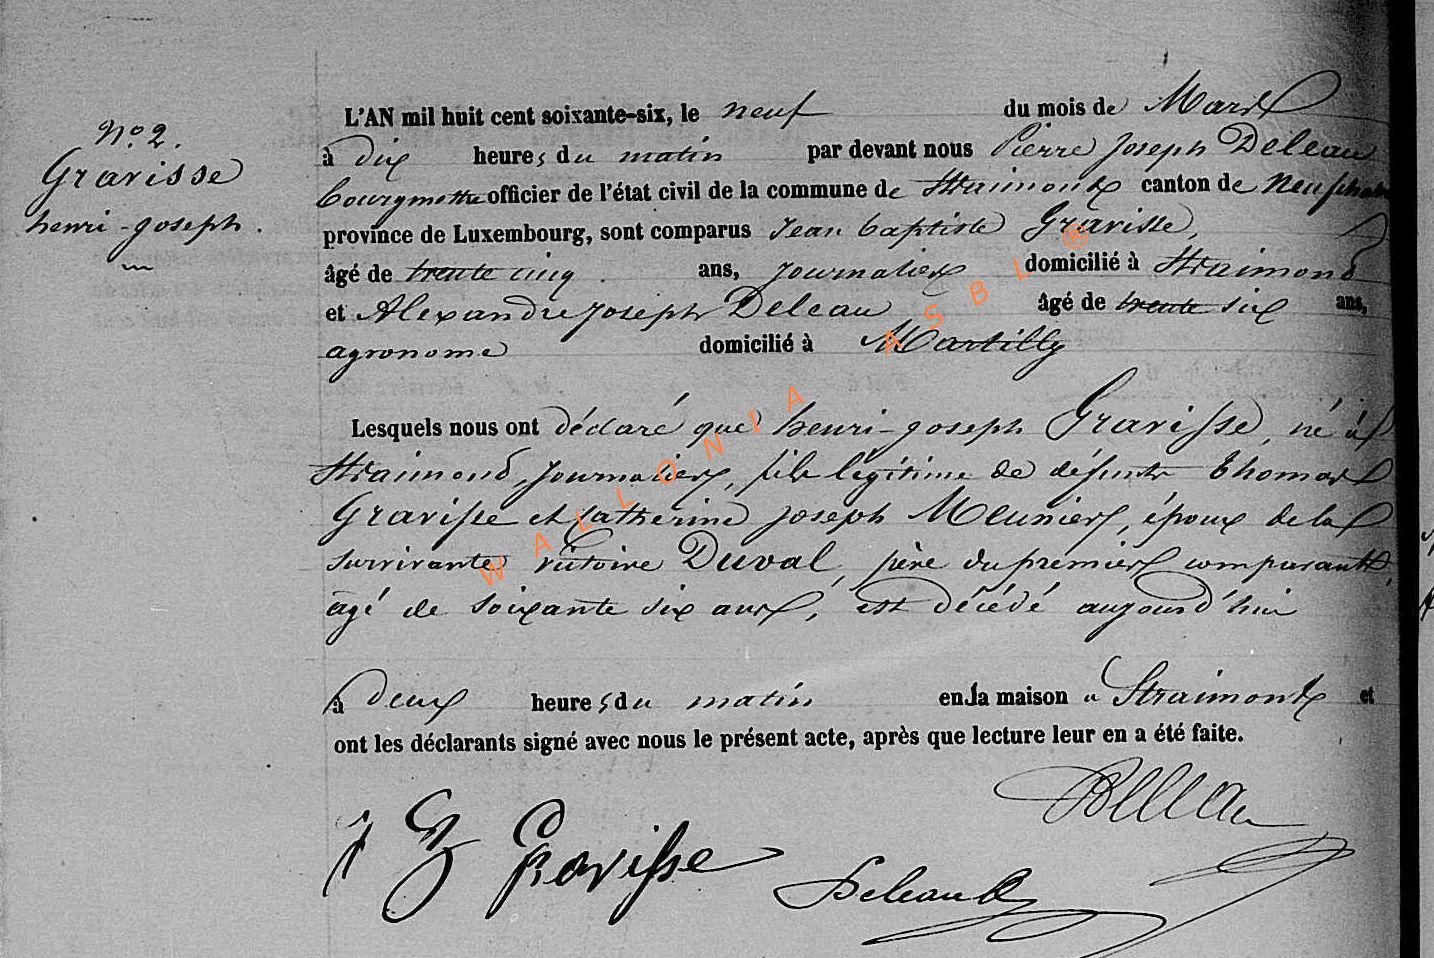 N.o 2.
Gravisse
henri-joseph.
L'AN mil huit cent soixante-six, le neuf du mois de Mars
à dix heures du matin par devant nous Pierre Joseph Deleau
bourgmettre officier de l'état civil de la commune de Straimont canton de Neufchateau
province de Luxembourg, sont comparus Jean baptiste Gravisse,
âgé de trente cinq ans, journalier domicilié à Straimond
et Alexandre joseph Deleau âgé de trente six ans,
agronome domicilié à Martilly
Lesquels nous ont déclaré que henri-joseph Gravisse, né à
Straimond, journalier, fils légitime de défunts thomas
Gravisse et Catherine joseph Meunier, époux de la
survivante victoire Duval, père du premier comparant,
âgé de soixante six ans, est décédé aujourd'hui
à deux heures du matin en la maison a Straimont et
ont les déclarants signé avec nous le présent acte, après que lecture leur en a été faite.
Deleau
J B Gravisse
Deleau
WALLONIA ASBL ®